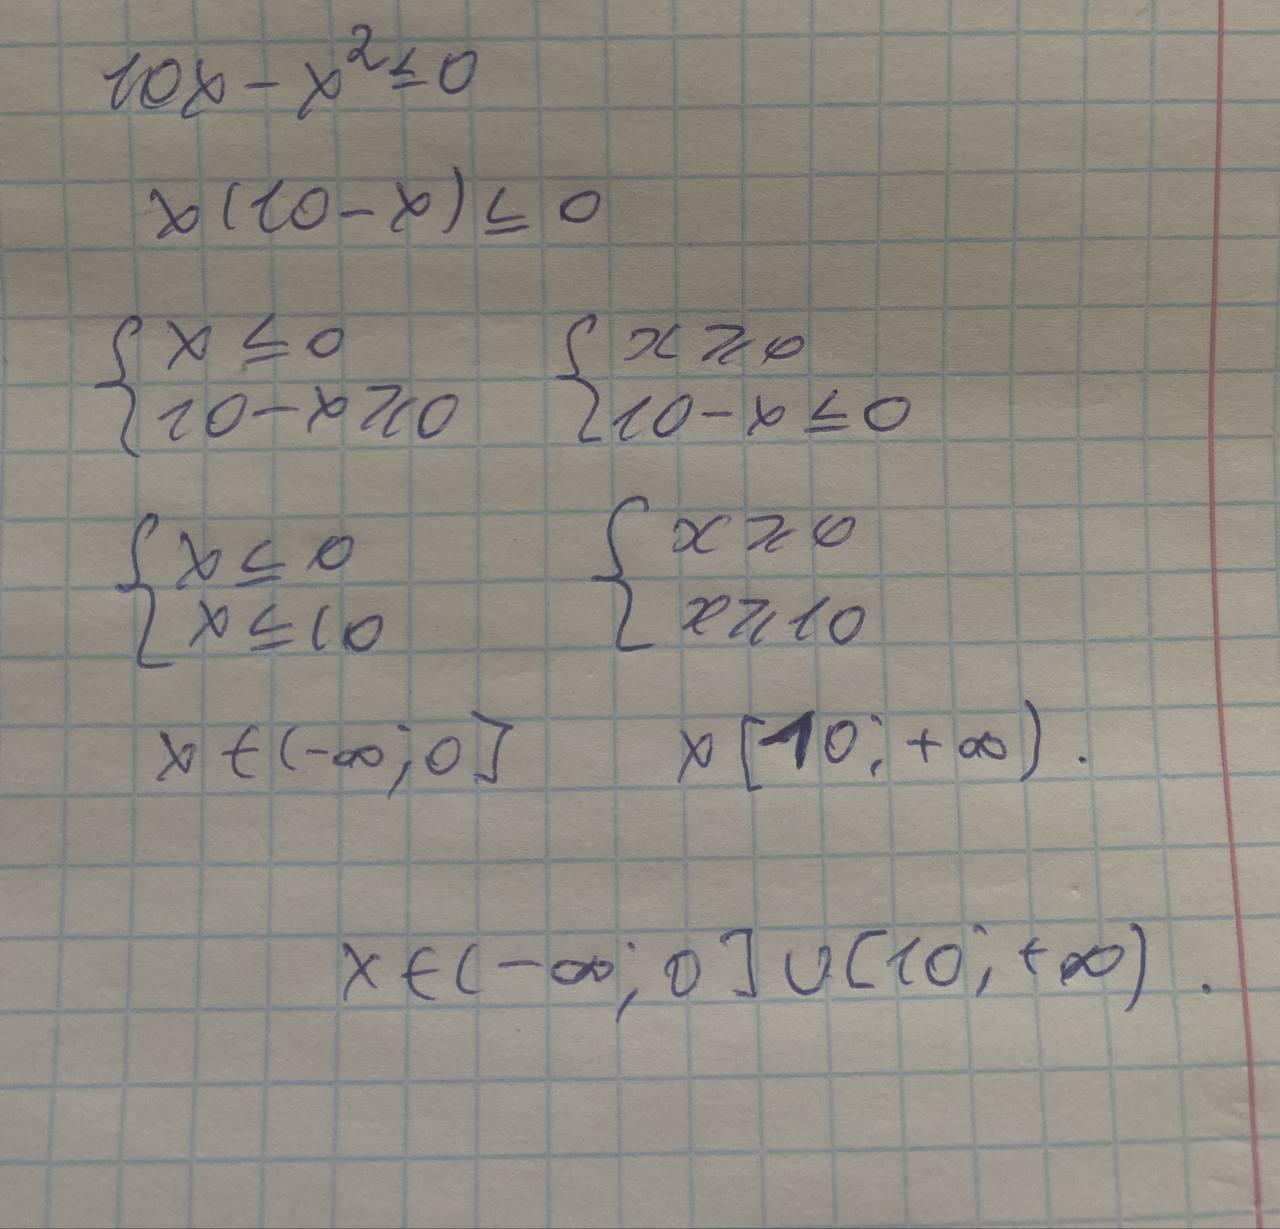 10x - x² ≤ 0
x(10 - x) ≤ 0
{ x ≤ 0 { x ≥ 0
10 - x ≥ 0 10 - x ≤ 0
{ x ≤ 0 { x ≥ 0
x ≤ 10 x ≥ 10
x ∈ (-∞; 0] x [10; +∞).
x ∈ (-∞; 0] ∪ [10; +∞).